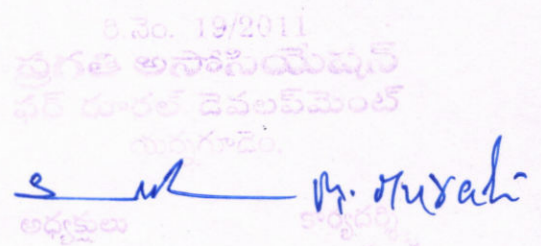 రి.నెం. 19/2011
ప్రగతి అసోసియేషన్
ఫర్ రూరల్ డెవలప్‌మెంట్
యర్నగూడెం,
అధ్యక్షులు కార్యదర్శి